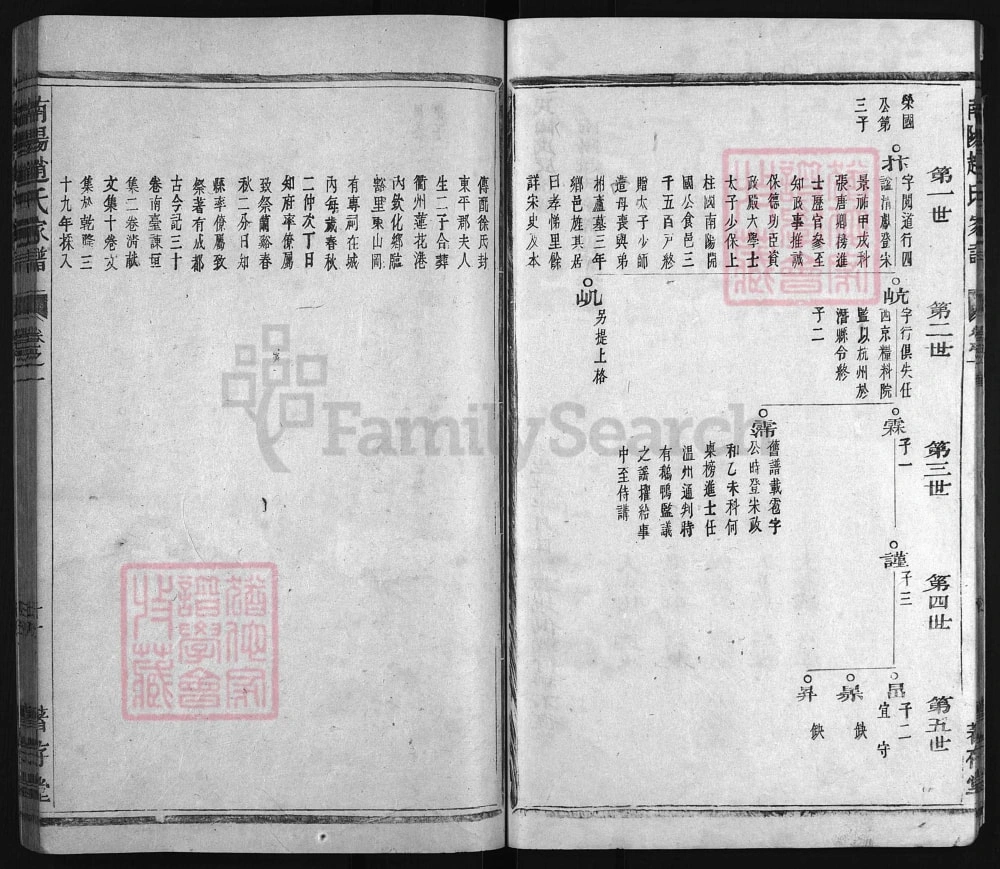 第一世
第二世
第三世
第四世
第五世
榮國
公第
三子
抃
字閱道行四
諡清獻登宋
景祐甲戌科
張唐卿榜進
士歷官參至
知政事推誠
保德功臣資
政殿大學士
太子少保上
柱國南陽開
國公食邑三
千五百戶終
贈太子少師
遭母喪與弟
相廬墓三年
鄉邑旌其居
曰孝悌里餘
詳宋史及本
傳配徐氏封
東平郡夫人
生二子合葬
衢州蓮花港
內欽化鄉臨
谿里東山岡
有專祠在城
內每歲春秋
二仲次丁日
知府率僚屬
致祭蘭谿春
秋二分日知
縣率僚屬致
祭著有成都
古今記三十
卷南臺諫垣
集二卷清献
文集十卷文
集於乾隆三
十九年採入
㞧
字行俱失任
西京糧料院
監以杭州於
潛縣令終
子二
屼
另提上格
霖
子一
霈
舊譜載雹字
公時登宋政
和乙未科何
㮚榜進士任
溫州通判時
有鵝鴨監議
之謠擢給事
中至侍講
謹
子三
昌
子二
宜 守
暴
缺
昇
缺
南陽趙氏家譜
FamilySearch